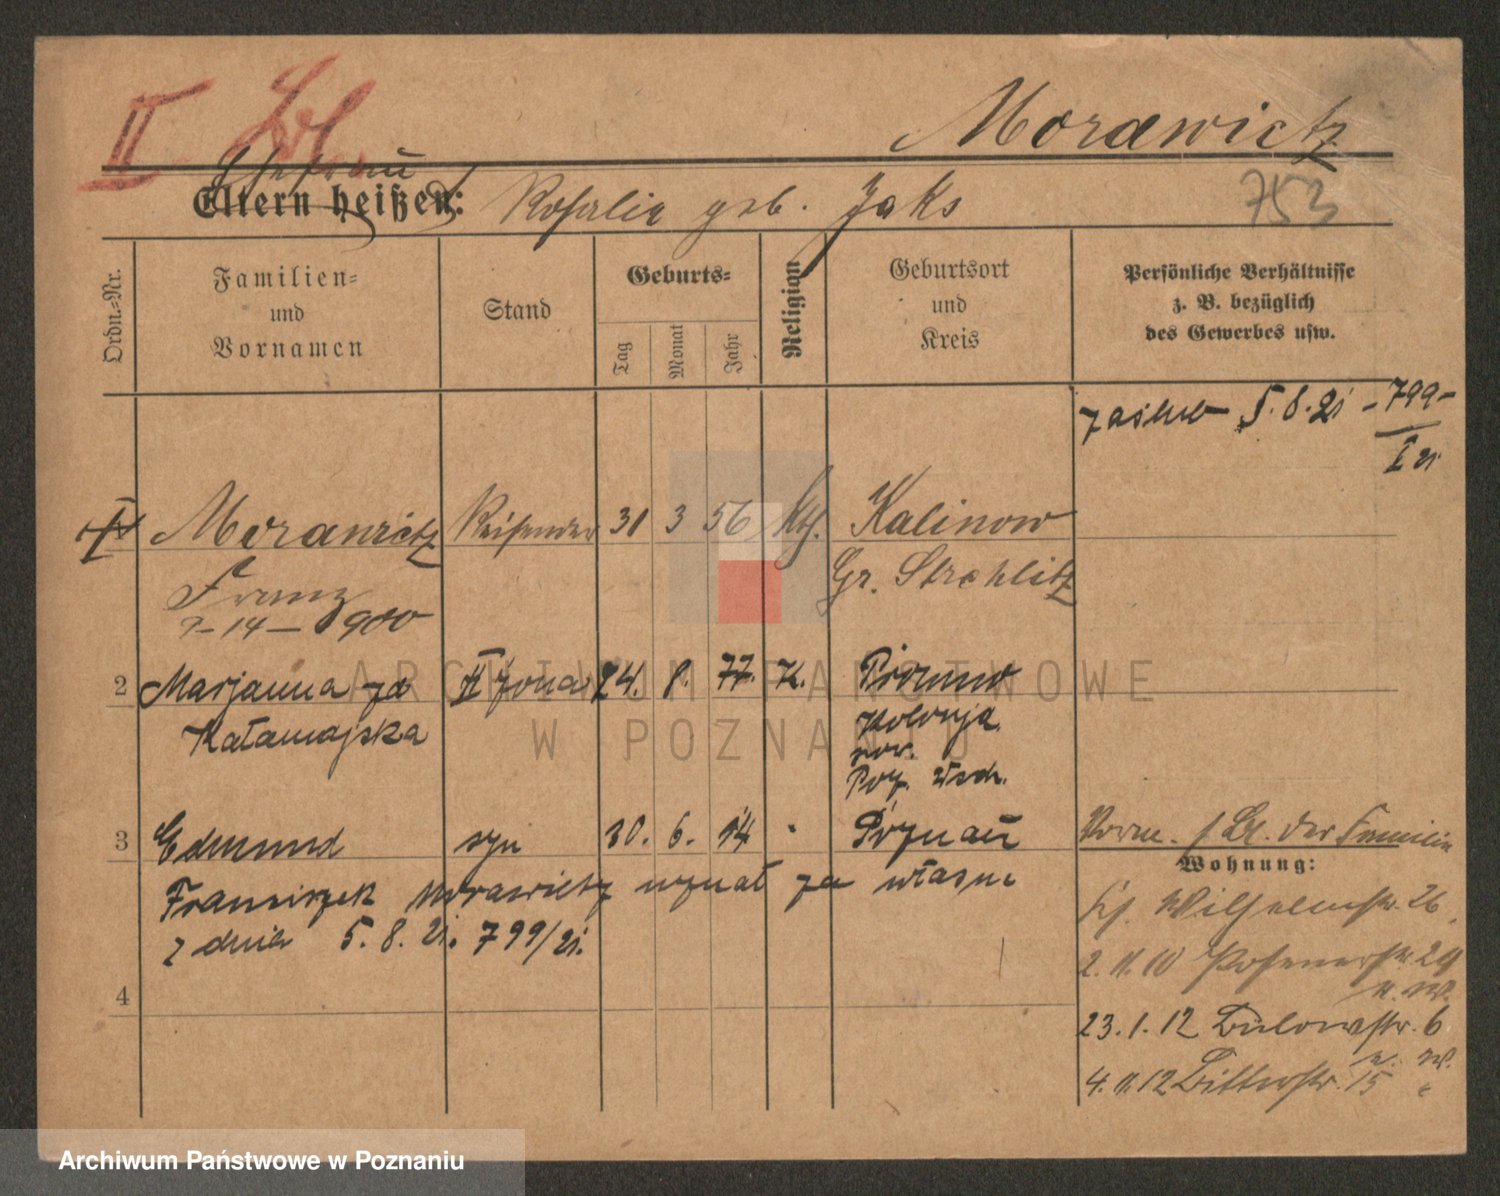 II
Morawietz
Ehefrau
Eltern heißen: Rosalie geb. Jaks
753
Ordn.=Nr.
Familien=
und
Vornamen
Stand
Geburts=
Tag
Monat
Jahr
Religion
Geburtsort
und
Kreis
Persönliche Verhältnisse
z. B. bezüglich
des Gewerbes usw.
zaślub 5.8.21 - 799 -
I 21
Morawietz Reisender 31 3 56 kth. Kalinow
Gr. Strehlitz
Franz
2 Marjanna zd II żona 24. 8. 77. K.
Kałamajska
Kolonja
pow.
Poz. Wsch.
3 Edmund syn 30. 6. 14 Poznań
Franciszek Morawietz uznał za własne
z dnia 5.8.21. 799/21.
4
der Familie
Wohnung:
Wilhelmstr. 26
2.11.10 Posenerstr. 29
23.1.12 Bülowstr. 6
4.11.12 15
ARCHIWUM PAŃSTWOWE
W POZNANIU
Archiwum Państwowe w Poznaniu